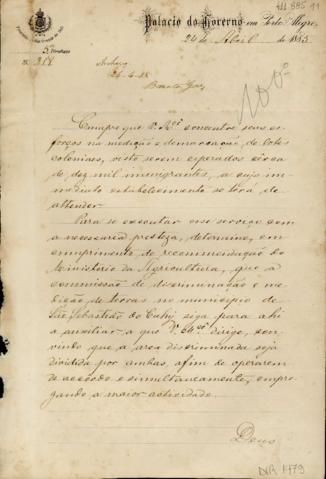 Palacio do Governo em Porto Alegre,
24 de Abril de 1885
5ª Directoria
N. 318
Archive
Cumpre que Vmcê concentre seus es-
forços na medição e demarcação de lotes
coloniaes, visto serem esperados cerca
de dez mil immigrantes, a cujo im-
mediato estabelecimento se terá de
attender.
Para se executar esse serviço com
a necessaria presteza, determino, em
cumprimento de recommendação do
Ministerio da Agricultura, que a
commissão de discriminação e me-
dição de terras no municipio de
São Sebastião do Cahy siga para ahi
a auxiliar a que Vmcê dirige, con-
vindo que a area discriminada seja
dividida por ambas, afim de operarem
de accordo e simultaneamente, empre-
gando a maior actividade.
Deus